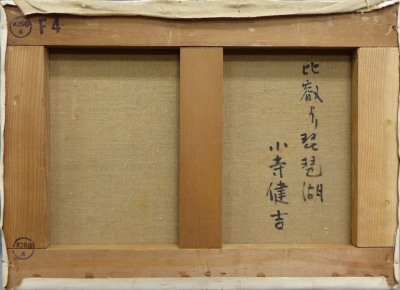 KISO
A
F4
比叡より琵琶湖
小寺健吉
KISO
A